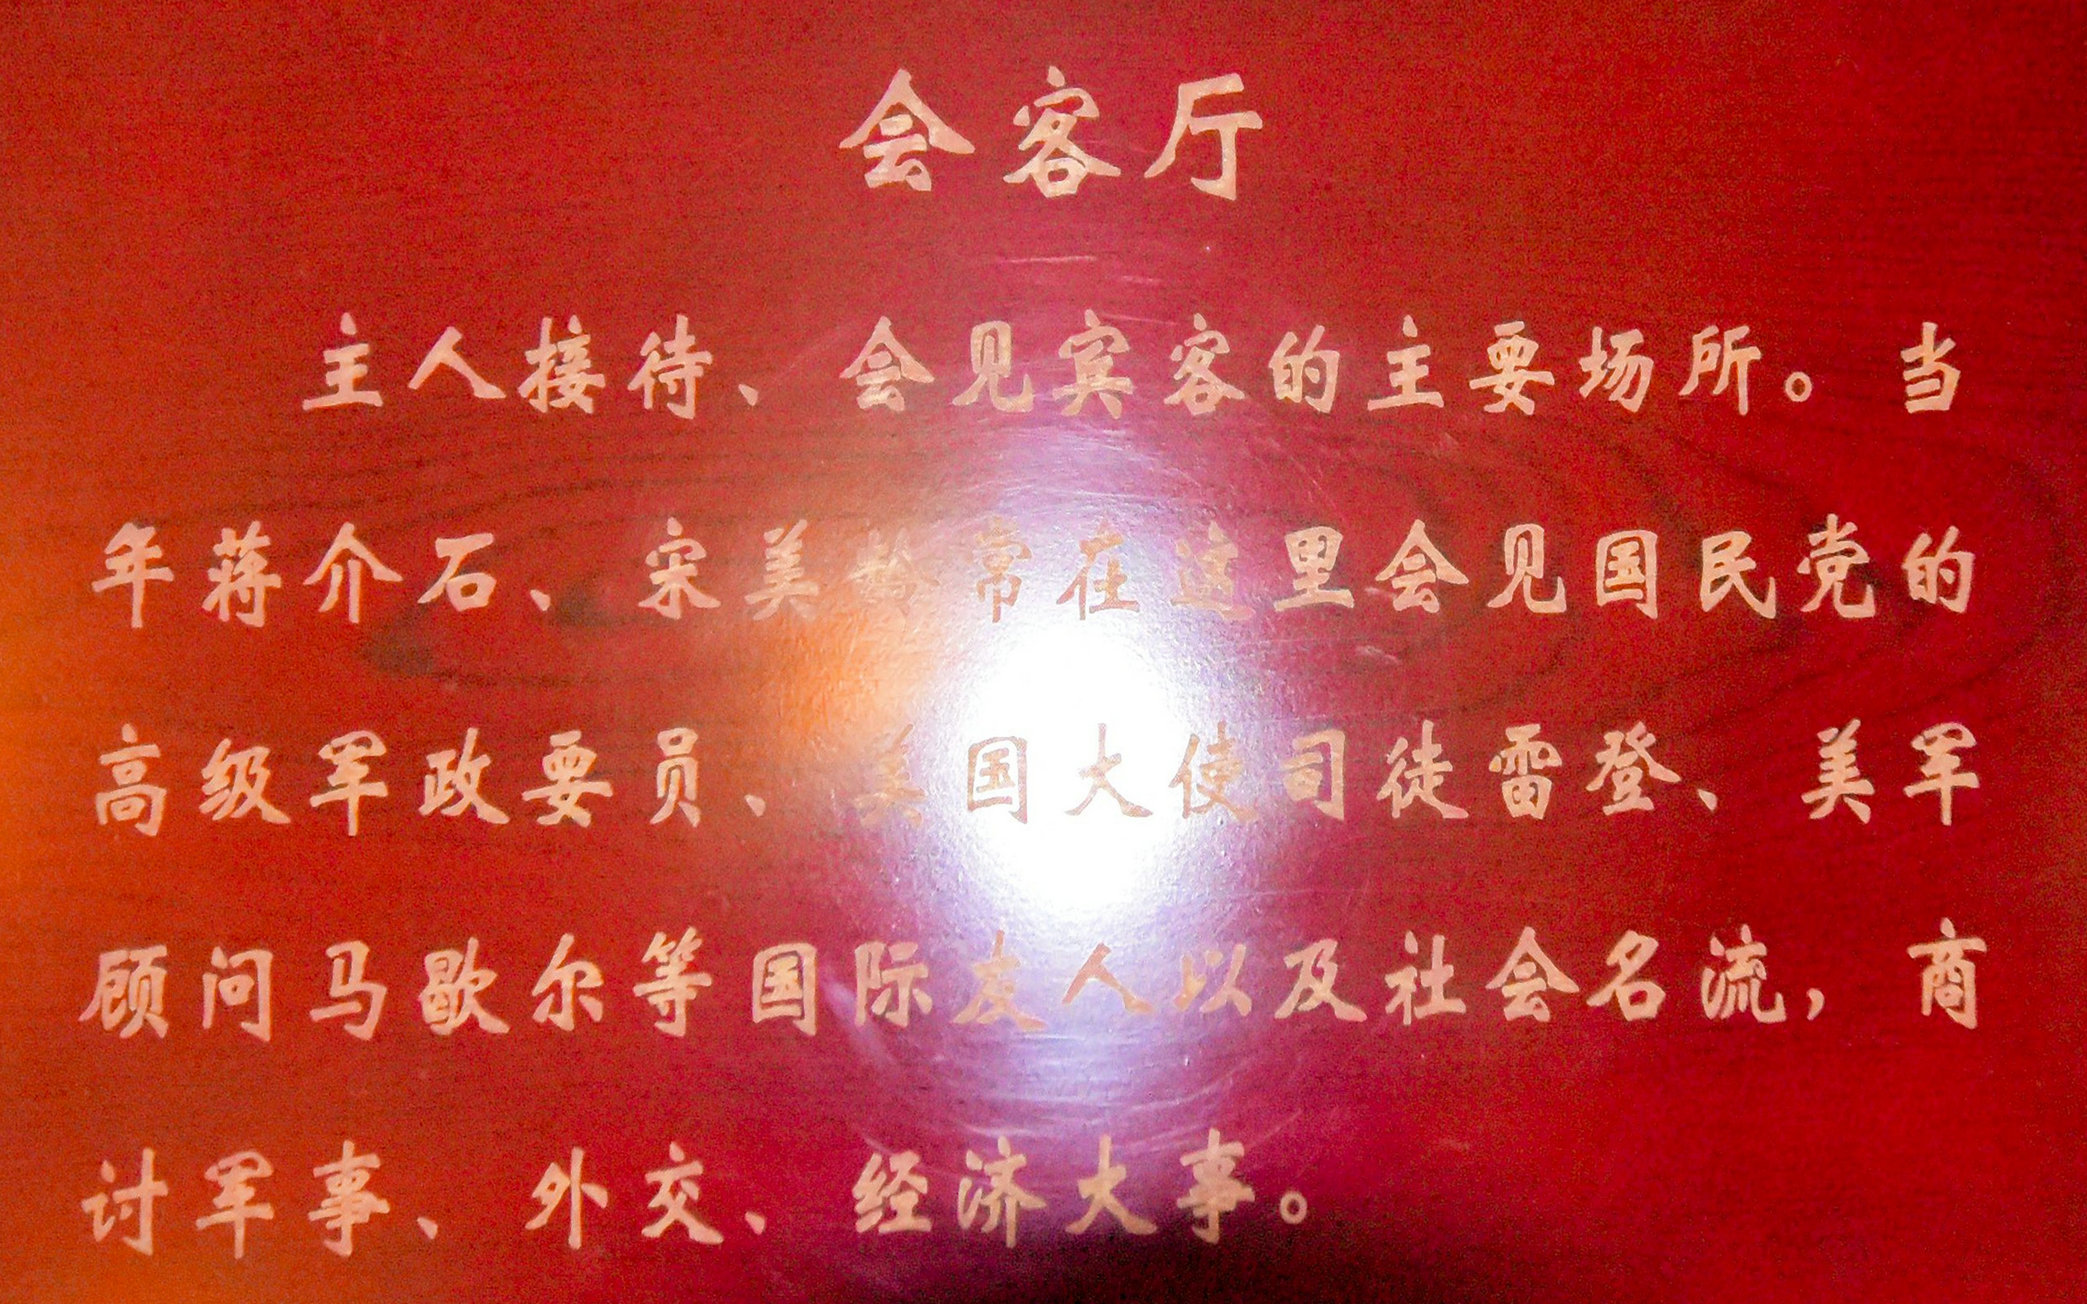 会客厅
主人接待、会见宾客的主要场所。当
年蒋介石、宋美龄常在这里会见国民党的
高级军政要员、美国大使司徒雷登、美军
顾问马歇尔等国际友人以及社会名流，商
讨军事、外交、经济大事。